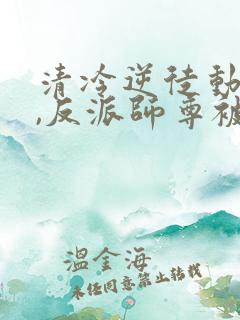 清冷逆徒動
,反派師尊被
溫金海
未经同意禁止转载